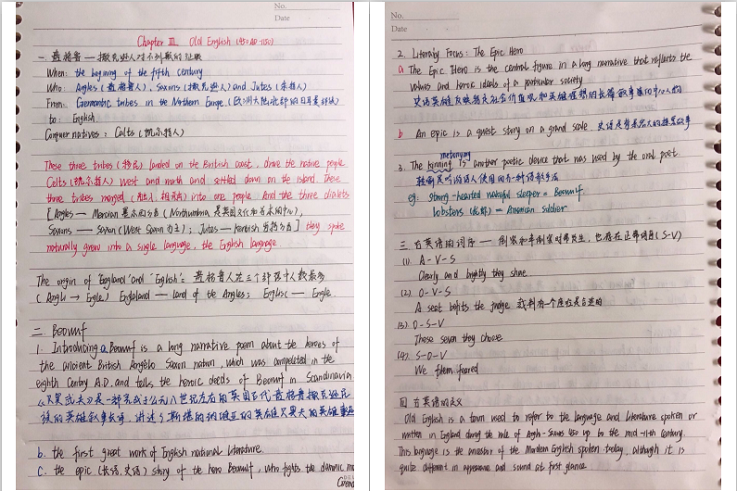 No.
Date
Chapter II Old English (45=AD-1150)
一 盎格鲁—撒克逊人对不列颠的征服
When: the beginning of the fifth century
Who: Angles (盎格鲁人), Saxons (撒克逊人) and Jutes (朱特人)
From: Germantic tribes in the Northern Europe (欧洲大陆北部的日耳曼部族)
to: English
Conquer natives: Celts (凯尔特人)
These three tribes (部落) landed on the British coast, drove the native people
Celts (凯尔特人) west and north and settled down on the island. These
three tribes merged into one people. And the three dialects
[Angles — Mercian (Northumbria 是英国文化和的中心),
Saxons — Saxon (West Saxon ); Jutes — Kentish ] they spoke
naturally grew into a single language, the English language.
The origin of 'England' and 'English': 盎格鲁人在三个部落中人数最多
(Angle → Engle) Engleland — land of the Angles; Englisc — Engle.
二 Beowulf
1. Introducing a. Beowulf is a long narrative poem about the heroes of
the ancient British Anglo Saxon nation, which was completed in the
eighth Century A.D. and tells the heroic deeds of Beowulf in Scandinavia
《贝奥武夫》是一部完成于公元八世纪左右的英国古代盎格鲁撒克逊民
族的英雄叙事长诗，讲述了斯堪的纳维亚的英雄贝奥武夫的英雄事迹
b. the first great work of English national literature.
c. the epic (长诗, 史诗) story of the hero Beowulf, who fights the demonic
No.
Date
2. Literary Focus: The Epic Hero
a The Epic Hero is the central figure in a long narrative that reflects the
values and heroic ideals of a particular society.
史诗英雄是反映特定社会价值观和英雄理想的长篇叙事中的中心人物
b An epic is a quest story on a grand scale. 史诗是的探索故事
metonymy
3. The kenning is another poetic device that was used by the oral poet
的诗人使用的另一种诗歌手法
eg: strong-hearted wakeful sleeper = Beowulf
lobsters (龙虾) = American soldier
三 古英语的词序 — 倒装和半倒装时常发生，也存在正常语序 (S-V)
(1) A-V-S
Clearly and brightly they shine
(2) O-V-S
A seat befits the judge
(3) O-S-V
These seven they chose
(4) S-O-V
We them feared
四 古英语的定义
Old English is a term used to refer to the language and literature spoken or
written in England during the rule of Anglo-Saxons 450 up to the mid-11th century.
This language is the ancestor of the Modern English spoken today, although it is
quite different in appearance and sound at first glance.